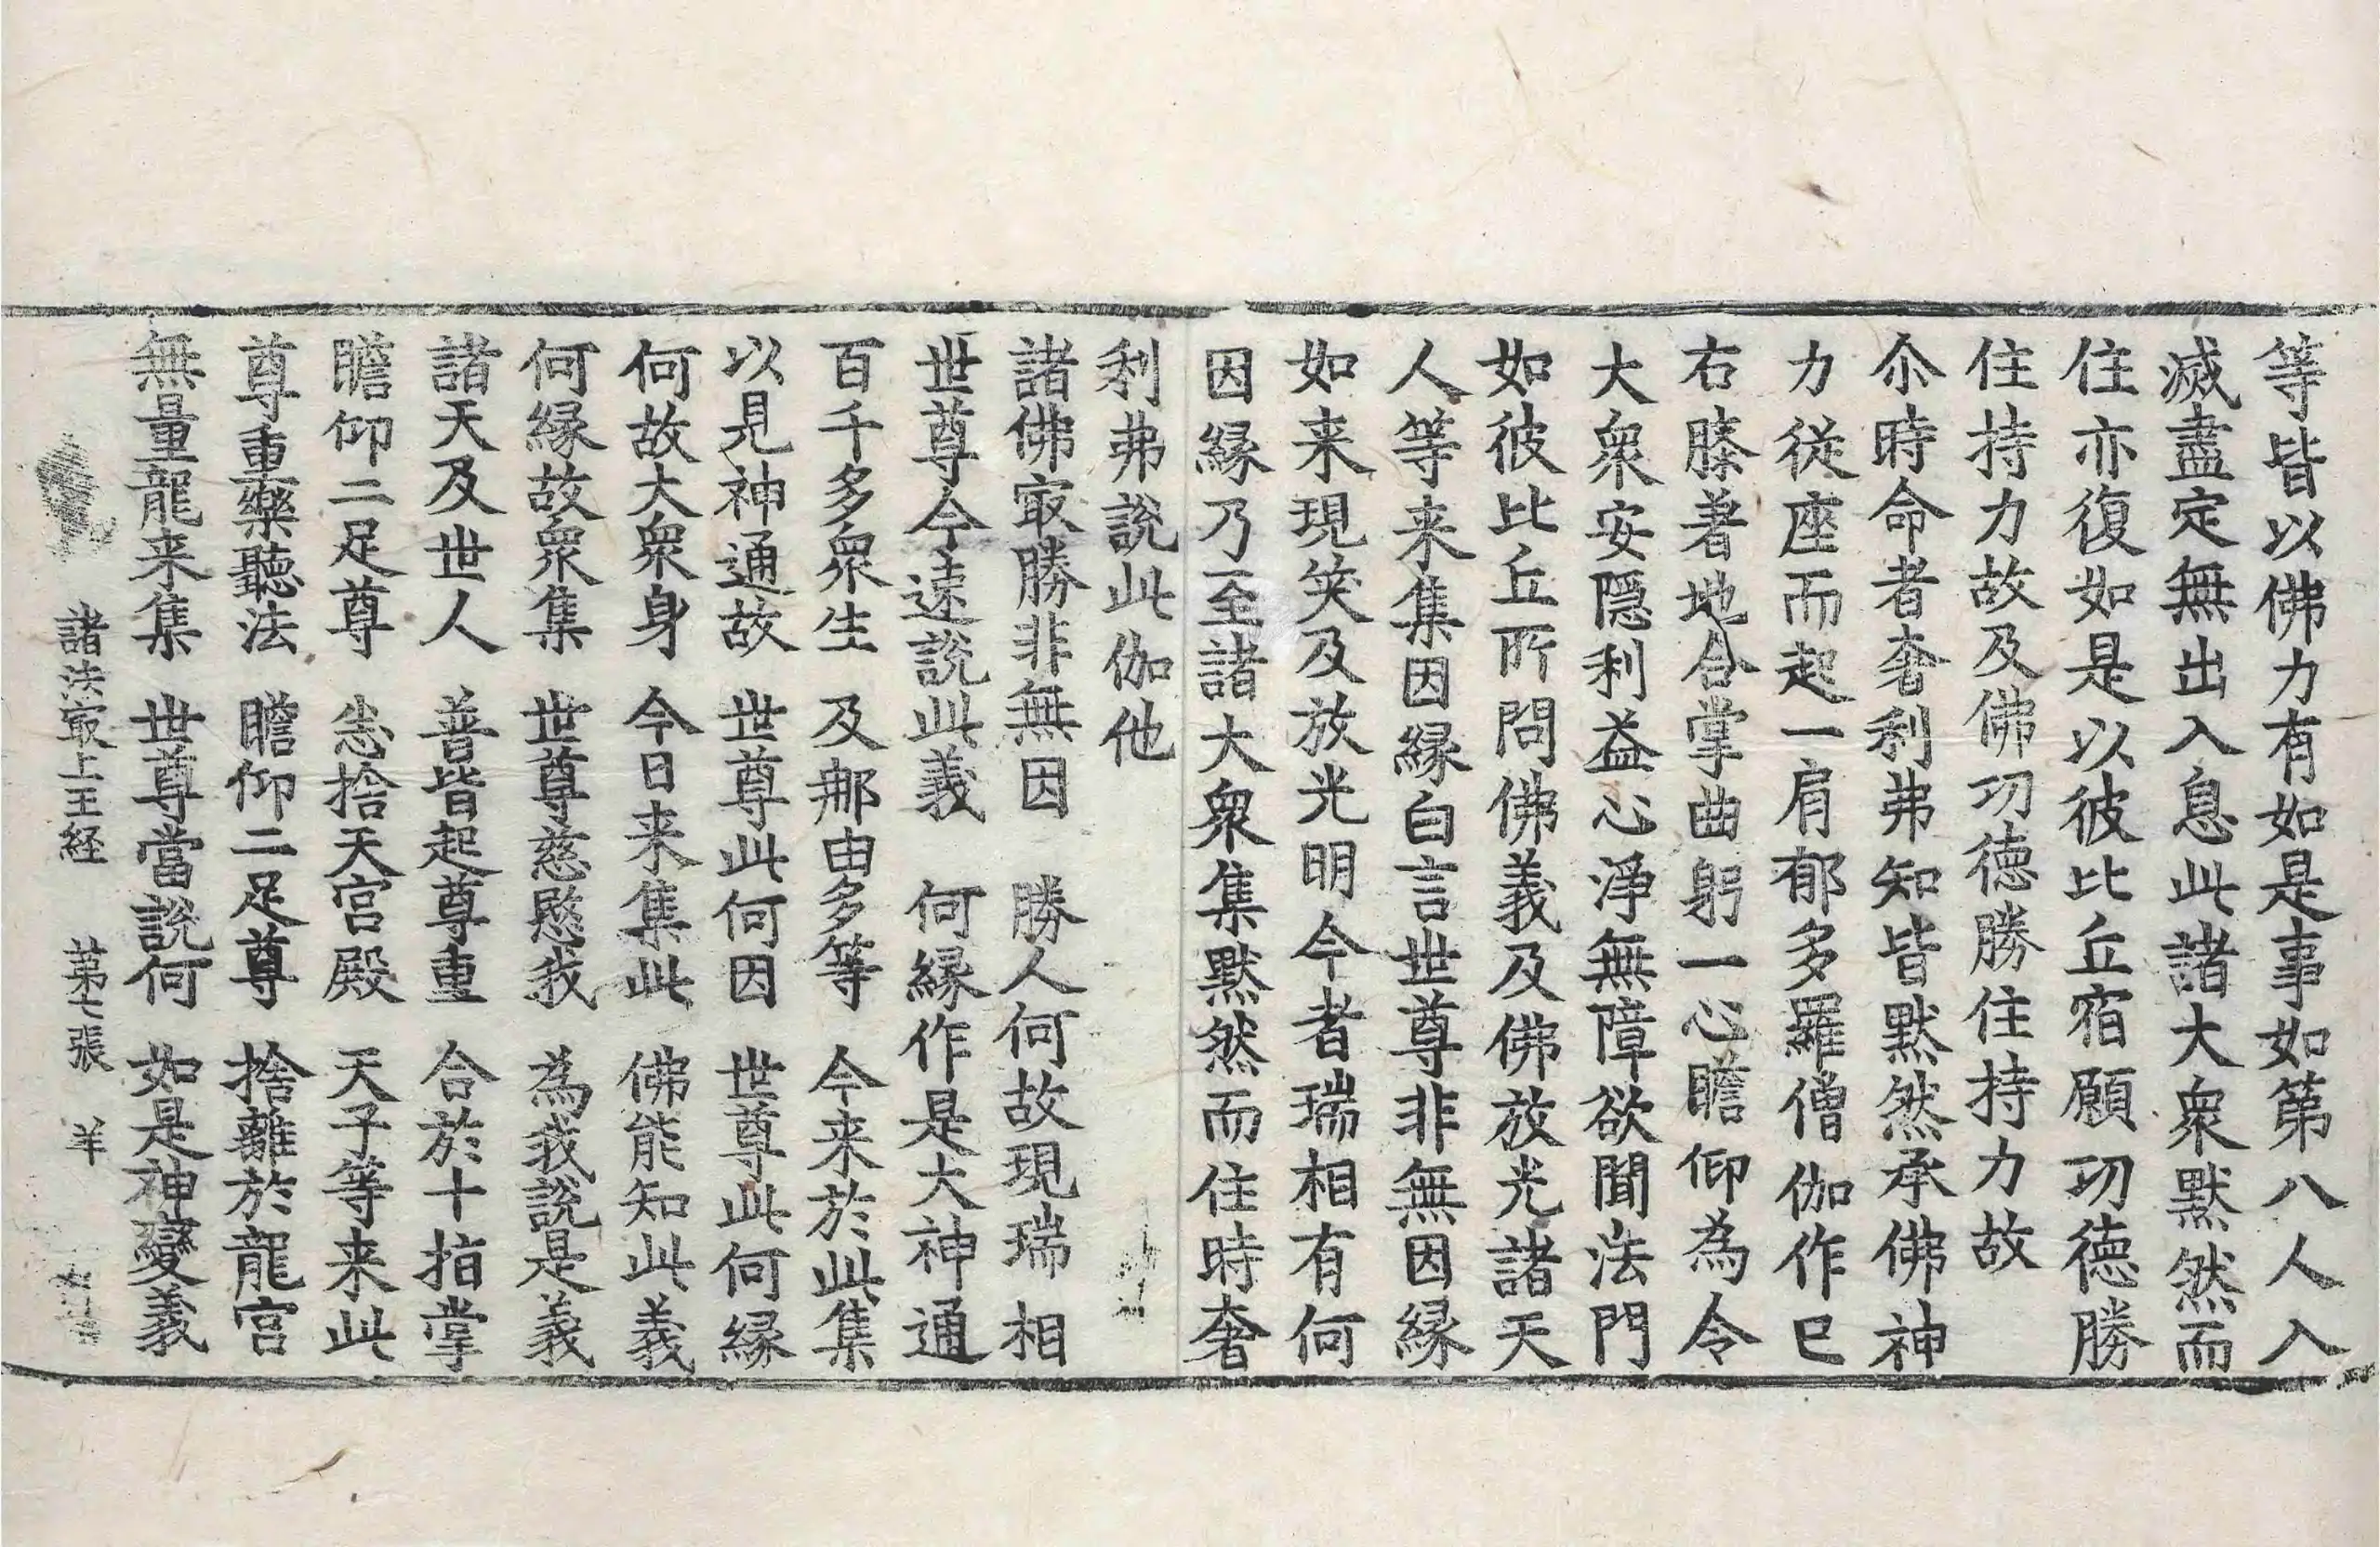 等皆以佛力有如是事如第八人入
滅盡定無出入息此諸大衆默然而
住亦復如是以彼比丘宿願功德勝
住持力故及佛功德勝住持力故
尒時命者奢利弗知皆默然承佛神
力從座而起一肩郁多羅僧伽作已
右膝著地合掌曲躬一心瞻仰為令
大衆安隱利益心淨無障欲聞法門
如彼比丘所問佛義及佛放光諸天
人等来集因緣白言世尊非無因緣
如来現笑及放光明今者瑞相有何
因緣乃至諸大衆集默然而住時奢
利弗說此伽他
諸佛㝡勝非無因　勝人何故現瑞相
世尊今速說此義　何緣作是大神通
百千多衆生　及那由多等　今来於此集
以見神通故　世尊此何因　世尊此何緣
何故大衆身　今日来集此　佛能知此義
何緣故衆集　世尊慈愍我　為我說是義
諸天及世人　普皆起尊重　合於十指掌
瞻仰二足尊　悉捨天宮殿　天子等来此
尊重樂聽法　瞻仰二足尊　捨離於龍宮
無量龍来集　世尊當說何　如是神變義
諸法㝡上王経　苐七張　羊